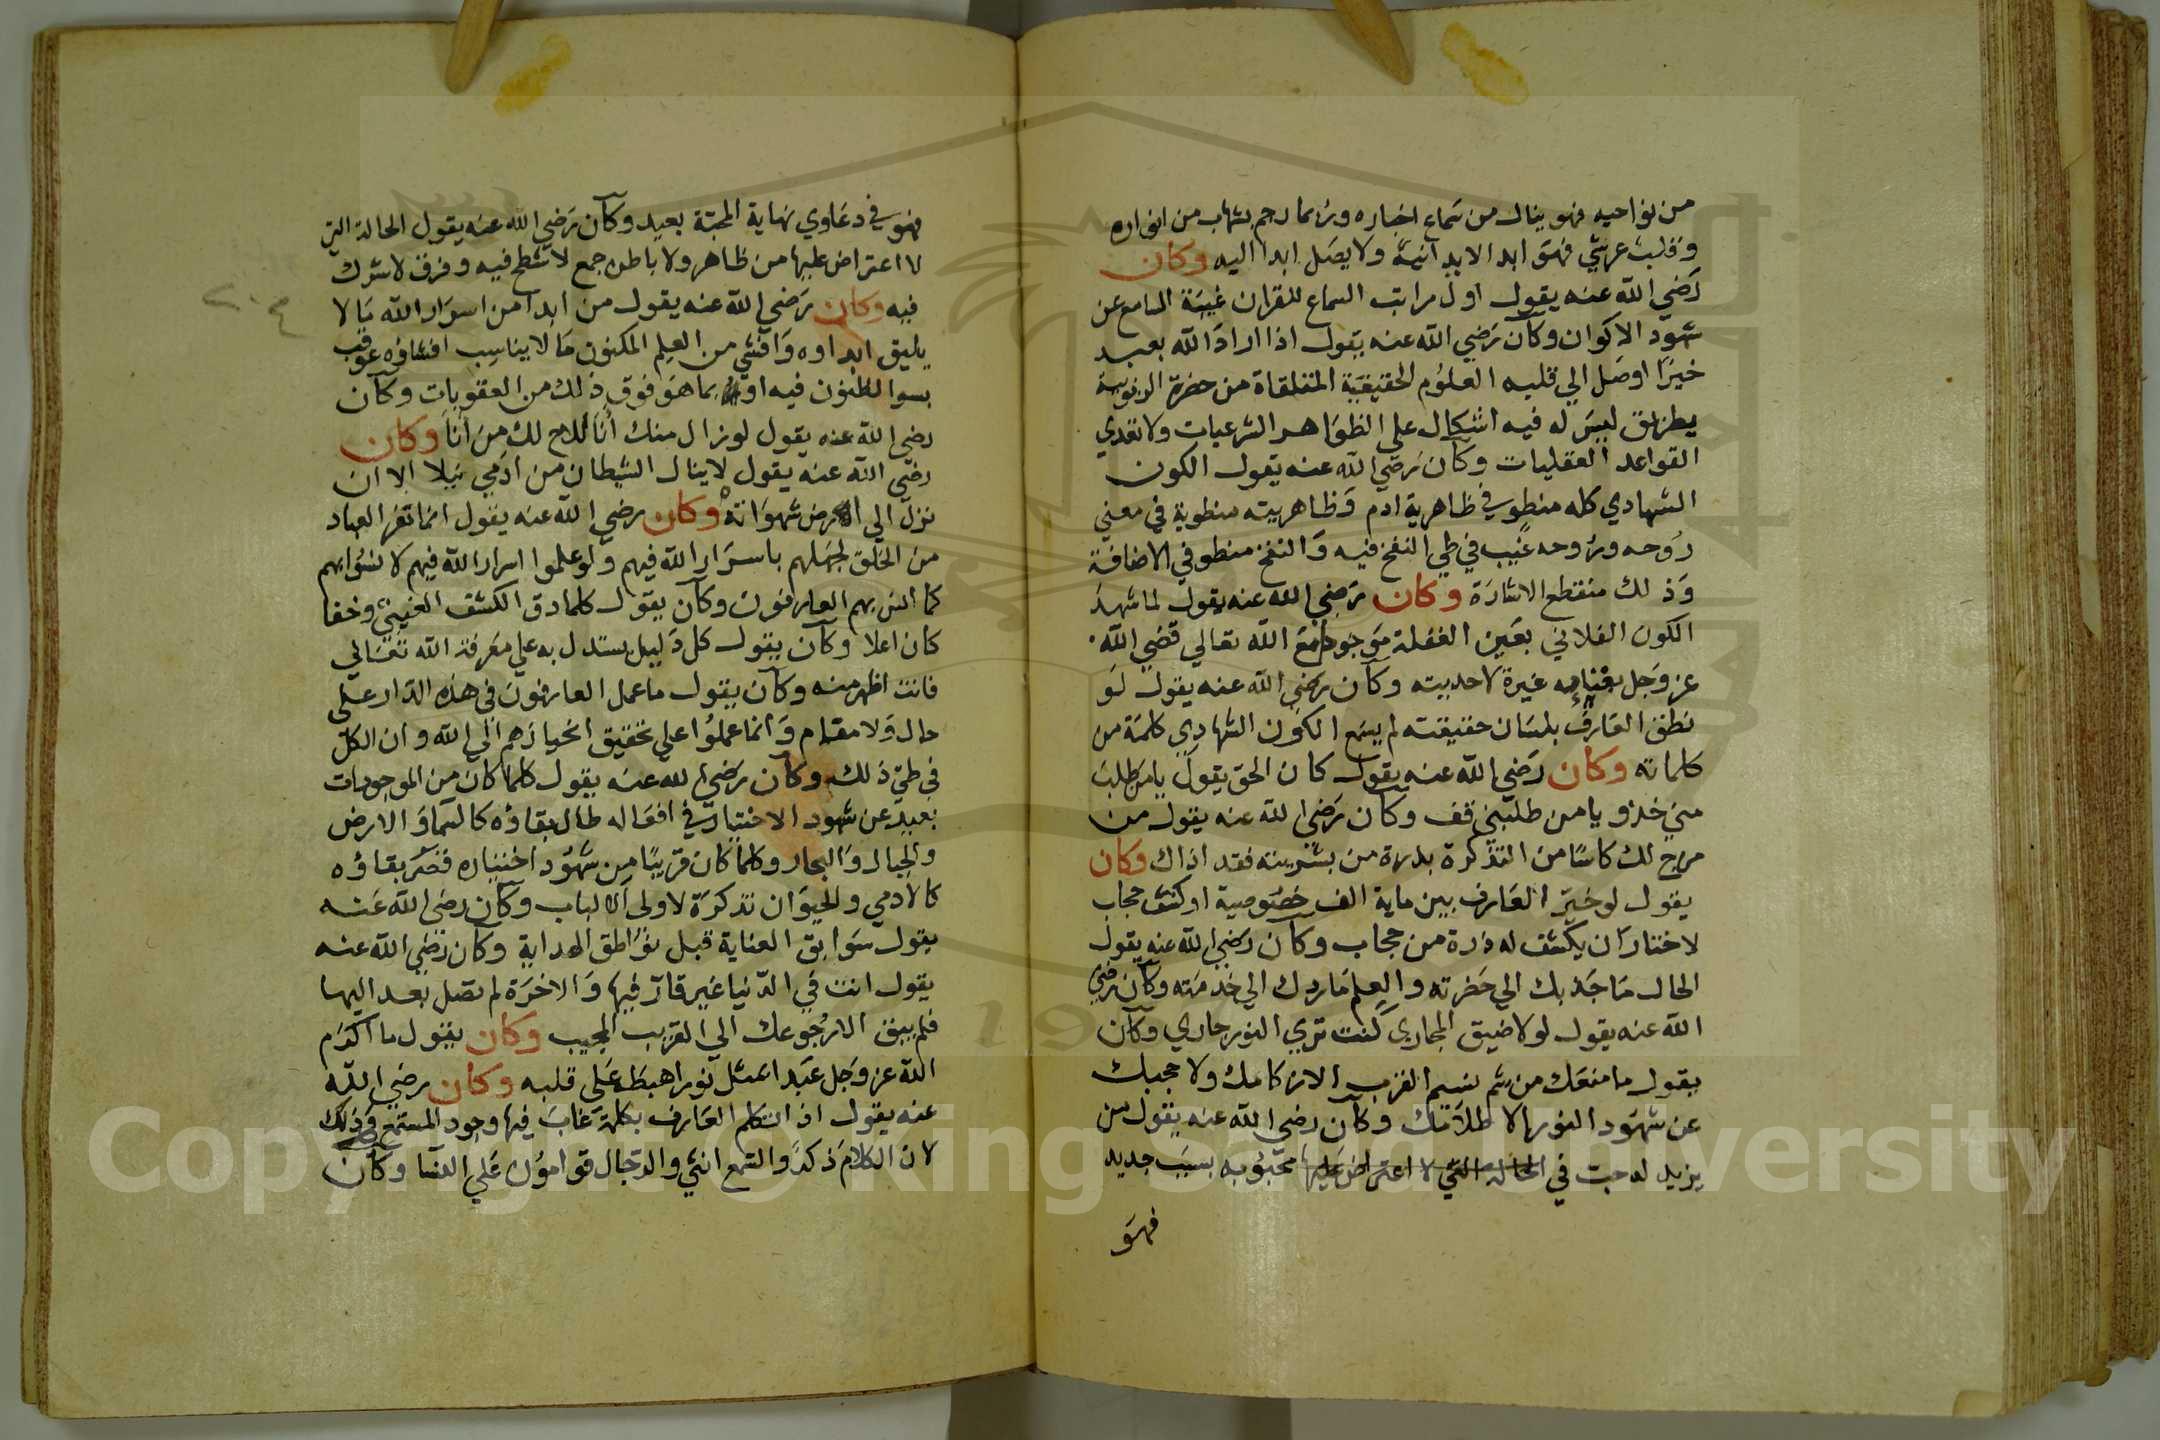 من نواحيه فهو ينال من سماع اخباره وربما رجم بشهاب من انواره
وقلب عرشي فهو ابد الابد اليه ولا يصل ابدا اليه وكان
رضي الله عنه يقول اول مراتب السماع للقران غيبة السامع عن
شهود الاكوان وكان رضي الله عنه يقول اذا اراد الله بعبد
خيرا اوصل الي قلبه العلوم الحقيقية المتلقاة من حضرة الربوبية
بطريق ليس له فيه اشكال علي الظواهر الشرعيات ولا تعدي
القواعد العقليات وكان رضي الله عنه يقول الكون
الشهادي كله منطوي في ظاهرية ادم وظاهريته منطوية في معني
روحه وروحه غيب في طي النفخ فيه والنفخ منطو في الاضافة
وذلك منقطع الاشارة وكان رضي الله عنه يقول لما شهد
الكون الفلاني بعين الغفلة موجودا مع الله تعالي قضي الله
عز وجل بفنايه غيرة لاحديته وكان رضي الله عنه يقول لو
نطق العارف بلسان حقيقته لم يسع الكون الشهادي كلمة من
كلماته وكان رضي الله عنه يقول كان الحق يقول يا من طلب
مني خذ ويا من طلبني قف وكان رضي الله عنه يقول من
مزج لك كاسا من التذكرة بذرة من بشريته فقد اذاك وكان
يقول لو خير العارف بين ماية الف خصوصية او كشف حجاب
لاختار ان يكشف له ذرة من حجاب وكان رضي الله عنه يقول
الحال ما جذبك الي حضرته والعلم ما ردك الي خدمته وكان رضي
الله عنه يقول لولا ضيق المجاري كنت تري النور جاري وكان
يقول ما منعك من شم نسيم القرب الا زكامك ولا حجبك
عن شهود النور الا ظلامك وكان رضي الله عنه يقول من
يزيد له حب في الحالة التي لا اعتراض عليها محبوبه بسبب جديد
فهو
فهو في دعاوي نهاية المحبة بعيد وكان رضي الله عنه يقول الحالة التي
لا اعتراض عليها من ظاهر ولا باطن جمع لا شطح فيه وفرق لا شرك
فيه وكان رضي الله عنه يقول من ابدا من اسرار الله ما لا
يليق ابداوه وافشي من العلم المكنون ما لا يناسب افشاوه عوقب
بسوا لظنون فيه او بما هو فوق ذلك من العقوبات وكان
رضي الله عنه يقول لو زال منك أنا للاح لك من أنا وكان
رضي الله عنه يقول لا ينال الشيطان من ادمي نيلا الا ان
نزل الي ارض شهواته وكان رضي الله عنه يقول انما تفر العباد
من الخلق لجهلهم باسرار الله فيهم ولو علموا اسرار الله فيهم لانسوا بهم
كما انس بهم العارفون وكان يقول كلما دق الكشف الغيبي وخفا
كان اعلا وكان يقول كل دليل يستدل به علي معرفة الله تعالي
فانت اظهر منه وكان يقول ما عمل العارفون في هذه الدار علي
حال ولا مقام وانما عملوا علي تحقيق انحيازهم الي الله وان الكل
في طي ذلك وكان رضي الله عنه يقول كلما كان من الموجودات
بعيد عن شهود الاختيار في افعاله طال بقاؤه كالسما والارض
والجبال والبحار وكلما كان قريبا من شهود اختياره قصر بقاؤه
كالادمي والحيوان تذكرة لاولي الالباب وكان رضي الله عنه
يقول سوابق العناية قبل نواطق الهداية وكان رضي الله عنه
يقول انت في الدنيا غير قار فيها والاخرة لم تصل بعد اليها
فلم يبق الا رجوعك الي القريب المجيب وكان يقول ما اكرم
الله عز وجل عبدا بمثل نور اهبطه علي قلبه وكان رضي الله
عنه يقول اذا تكلم العارف بكلمة غاب فيها وجود المستمع وذلك
لان الكلام ذكر والسمع انثي والرجال قوامون علي النسا وكان